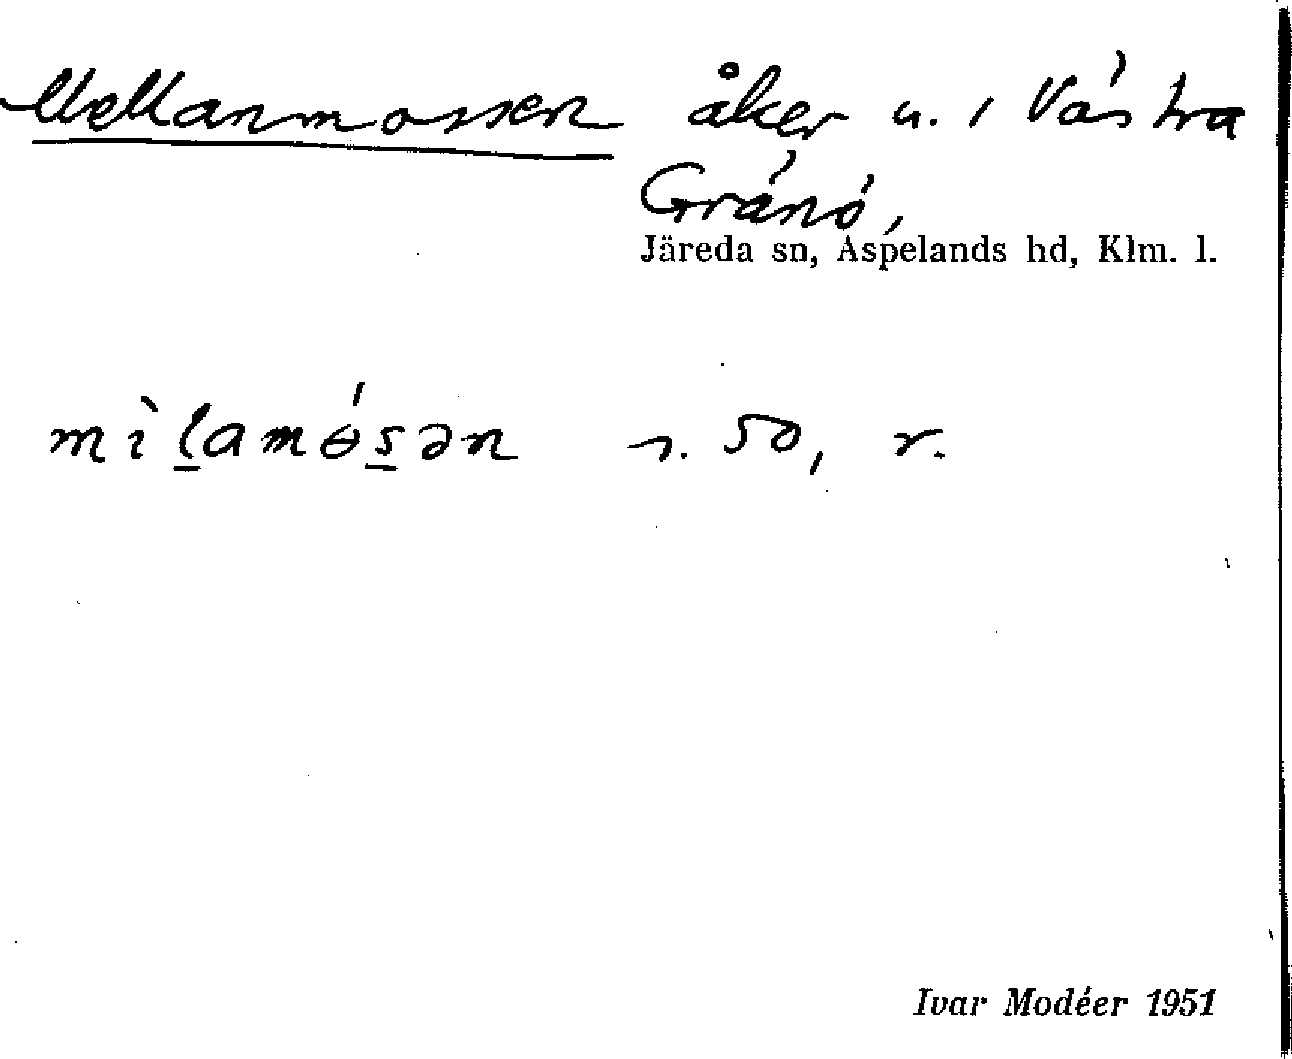 Mellanmossen åker u. 1 Västra
Gränö,
Järeda sn, Aspelands hd, Klm. l.
mìlamɵ́sən s. 50, r.
Ivar Modéer 1951